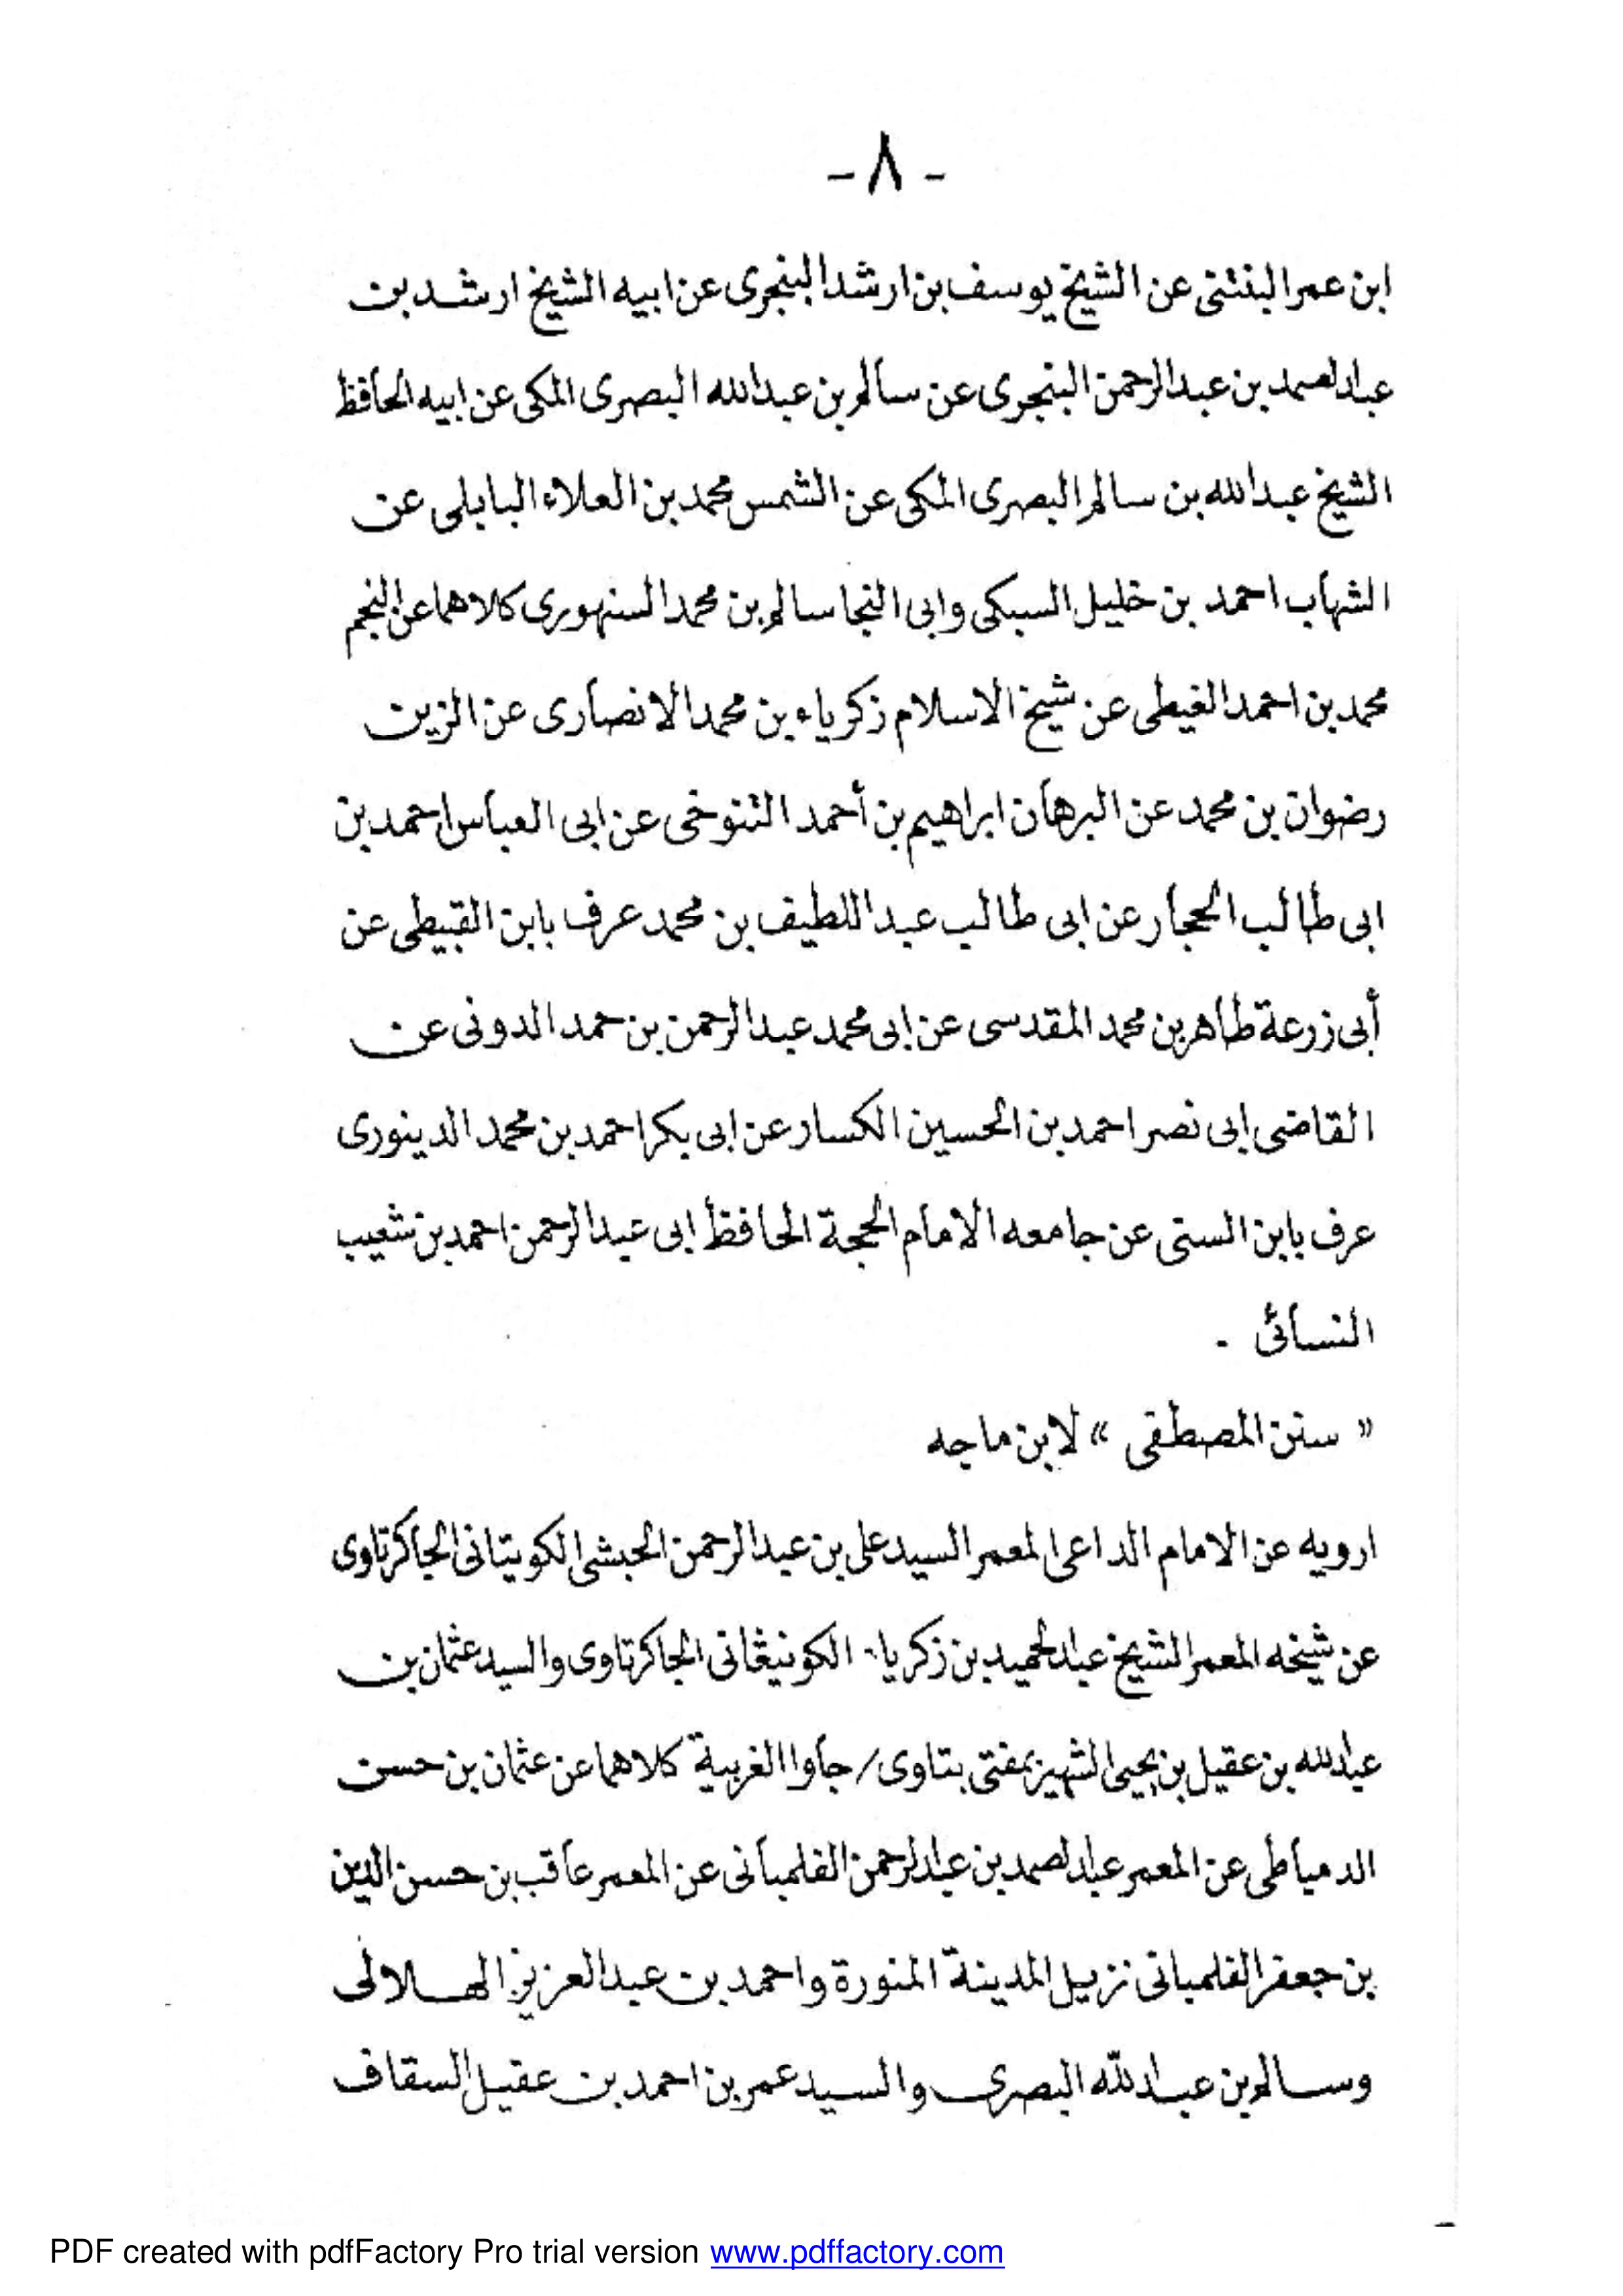 - ٨ -
ابن عمر البنتنى عن الشيخ يوسف بن ارشد البنجرى عن ابيه الشيخ ارشد بن
عبد الصمد بن عبد الرحمن البنجرى عن سالم بن عبد الله البصرى المكى عن ابيه الحافظ
الشيخ عبد الله بن سالم البصرى المكى عن الشمس محمد بن العلاء البابلى عن
الشهاب احمد بن خليل السبكى وابى النجا سالم بن محمد السنهورى كلاهما عن النجم
محمد بن احمد الغيطى عن شيخ الاسلام زكرياء بن محمد الانصارى عن الزين
رضوان بن محمد عن البرهان ابراهيم بن أحمد التنوخى عن ابى العباس احمد بن
ابى طالب الحجار عن ابى طالب عبد اللطيف بن محمد عرف بابن القبيطى عن
أبى زرعة طاهر بن محمد المقدسى عن ابى محمد عبد الرحمن بن حمد الدونى عن
القاضى ابى نصر احمد بن الحسين الكسار عن ابى بكر احمد بن محمد الدينورى
عرف بابن السنى عن جامعه الامام الحجة الحافظ ابى عبد الرحمن احمد بن شعيب
النسائى .
« سنن المصطفى » لابن ماجه
ارويه عن الامام الداعى المعمر السيد على بن عبد الرحمن الحبشى الكويتانى الجاكرتاوى
عن شيخه المعمر الشيخ عبد الحميد بن زكريا الكونيڠانى الجاكرتاوى والسيد عثمان بن
عبد الله بن عقيل بن يحيى الشهير بمفتى بتاوى / جاوا الغربية كلاهما عن عثمان بن حسن
الدمياطى عن المعمر عبد الصمد بن عبد الرحمن الفلمبانى عن المعمر عاقب بن حسن الدين
بن جعفر الفلمبانى نزيل المدينة المنورة واحمد بن عبد العزيز الهلالى
وسالم بن عبد الله البصرى والسيد عمر بن احمد بن عقيل السقاف
PDF created with pdfFactory Pro trial version www.pdffactory.com